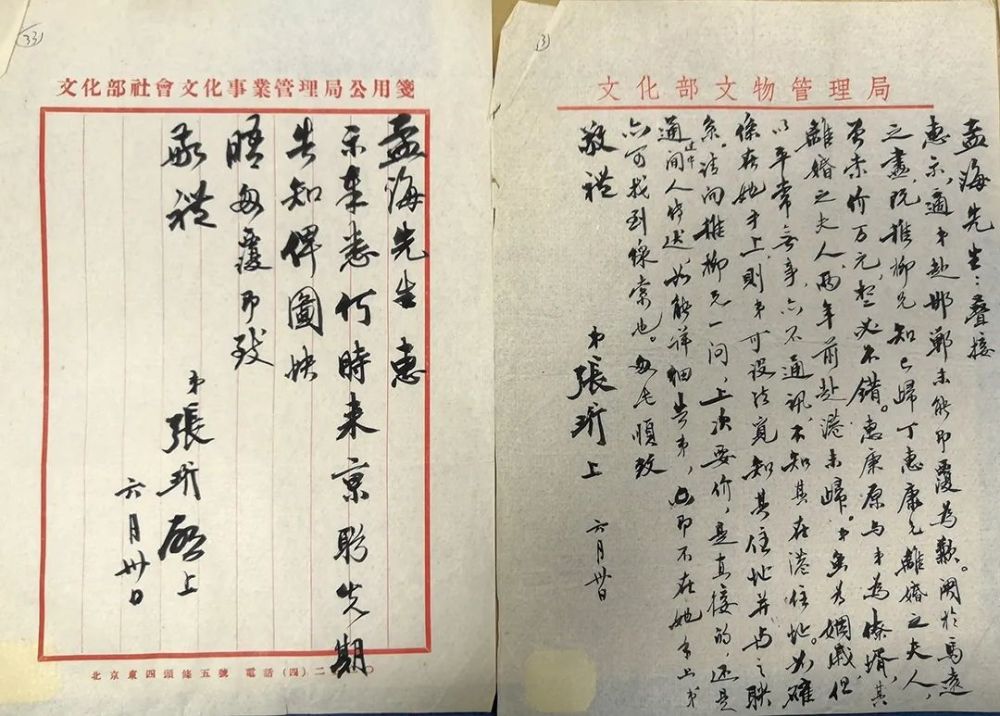 33
文化部社會文化事業管理局公用箋
孟海先生惠
示奉悉何時来京盼先期
告知俾圖快
晤匆覆即致
敬禮
弟張珩啟上
六月卅日
北京東四頭條五號 電話(四)二
3
文化部文物管理局
孟海先生:叠接
惠示,適弟赴邯鄲未能即覆為歉。關於馬遠
之畫,既推柳兄知已歸丁惠康兄離婚之夫人,
並索价万元,想必不錯。惠康原与弟為僚壻,其
離婚之夫人,兩年前赴港未歸。弟雖为姻戚,但
以平常無事,亦不通訊,不知其在港住址。如確
係在她手上,則弟可設法覓知其住址并与之联
系。請向推柳兄一问,上次要价,是直接的,还是
通過中间人传达,如能詳细告弟,即不在她手上弟
亦可找到線索也。匆匆順致
敬禮
弟張珩上
六月卅日